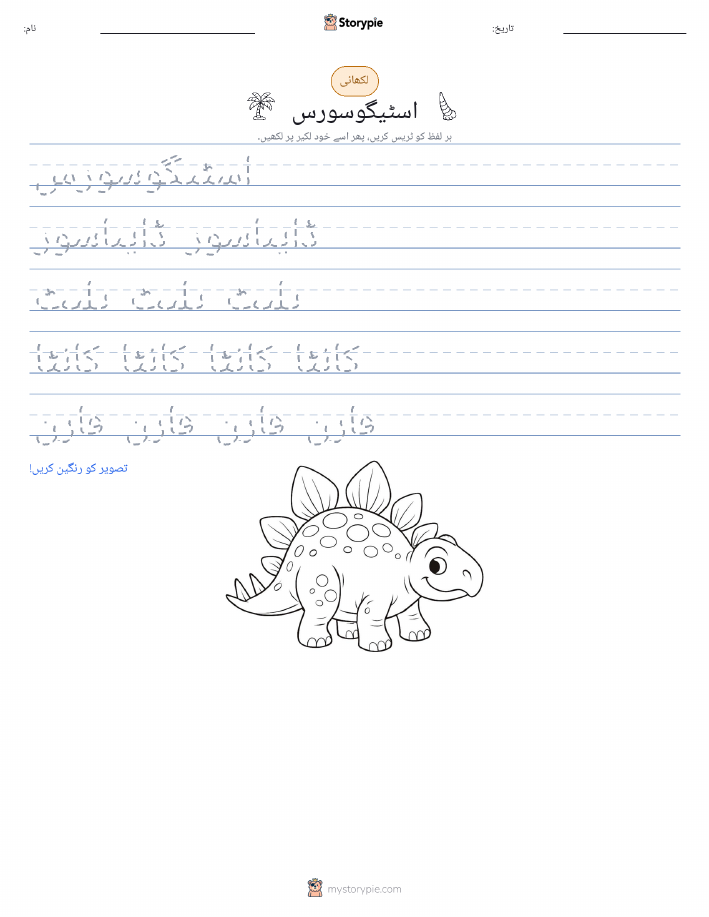 نام:
Storypie
تاریخ:
لکھائی
اسٹیگوسورس
ہر لفظ کو ٹریس کریں، پھر اسے خود لکیر پر لکھیں۔
اسٹیگوسورس
ڈایناسور ڈایناسور
پلیٹ پلیٹ پلیٹ
کانٹا کانٹا کانٹا کانٹا
فارن فارن فارن فارن
تصویر کو رنگین کریں!
mystorypie.com